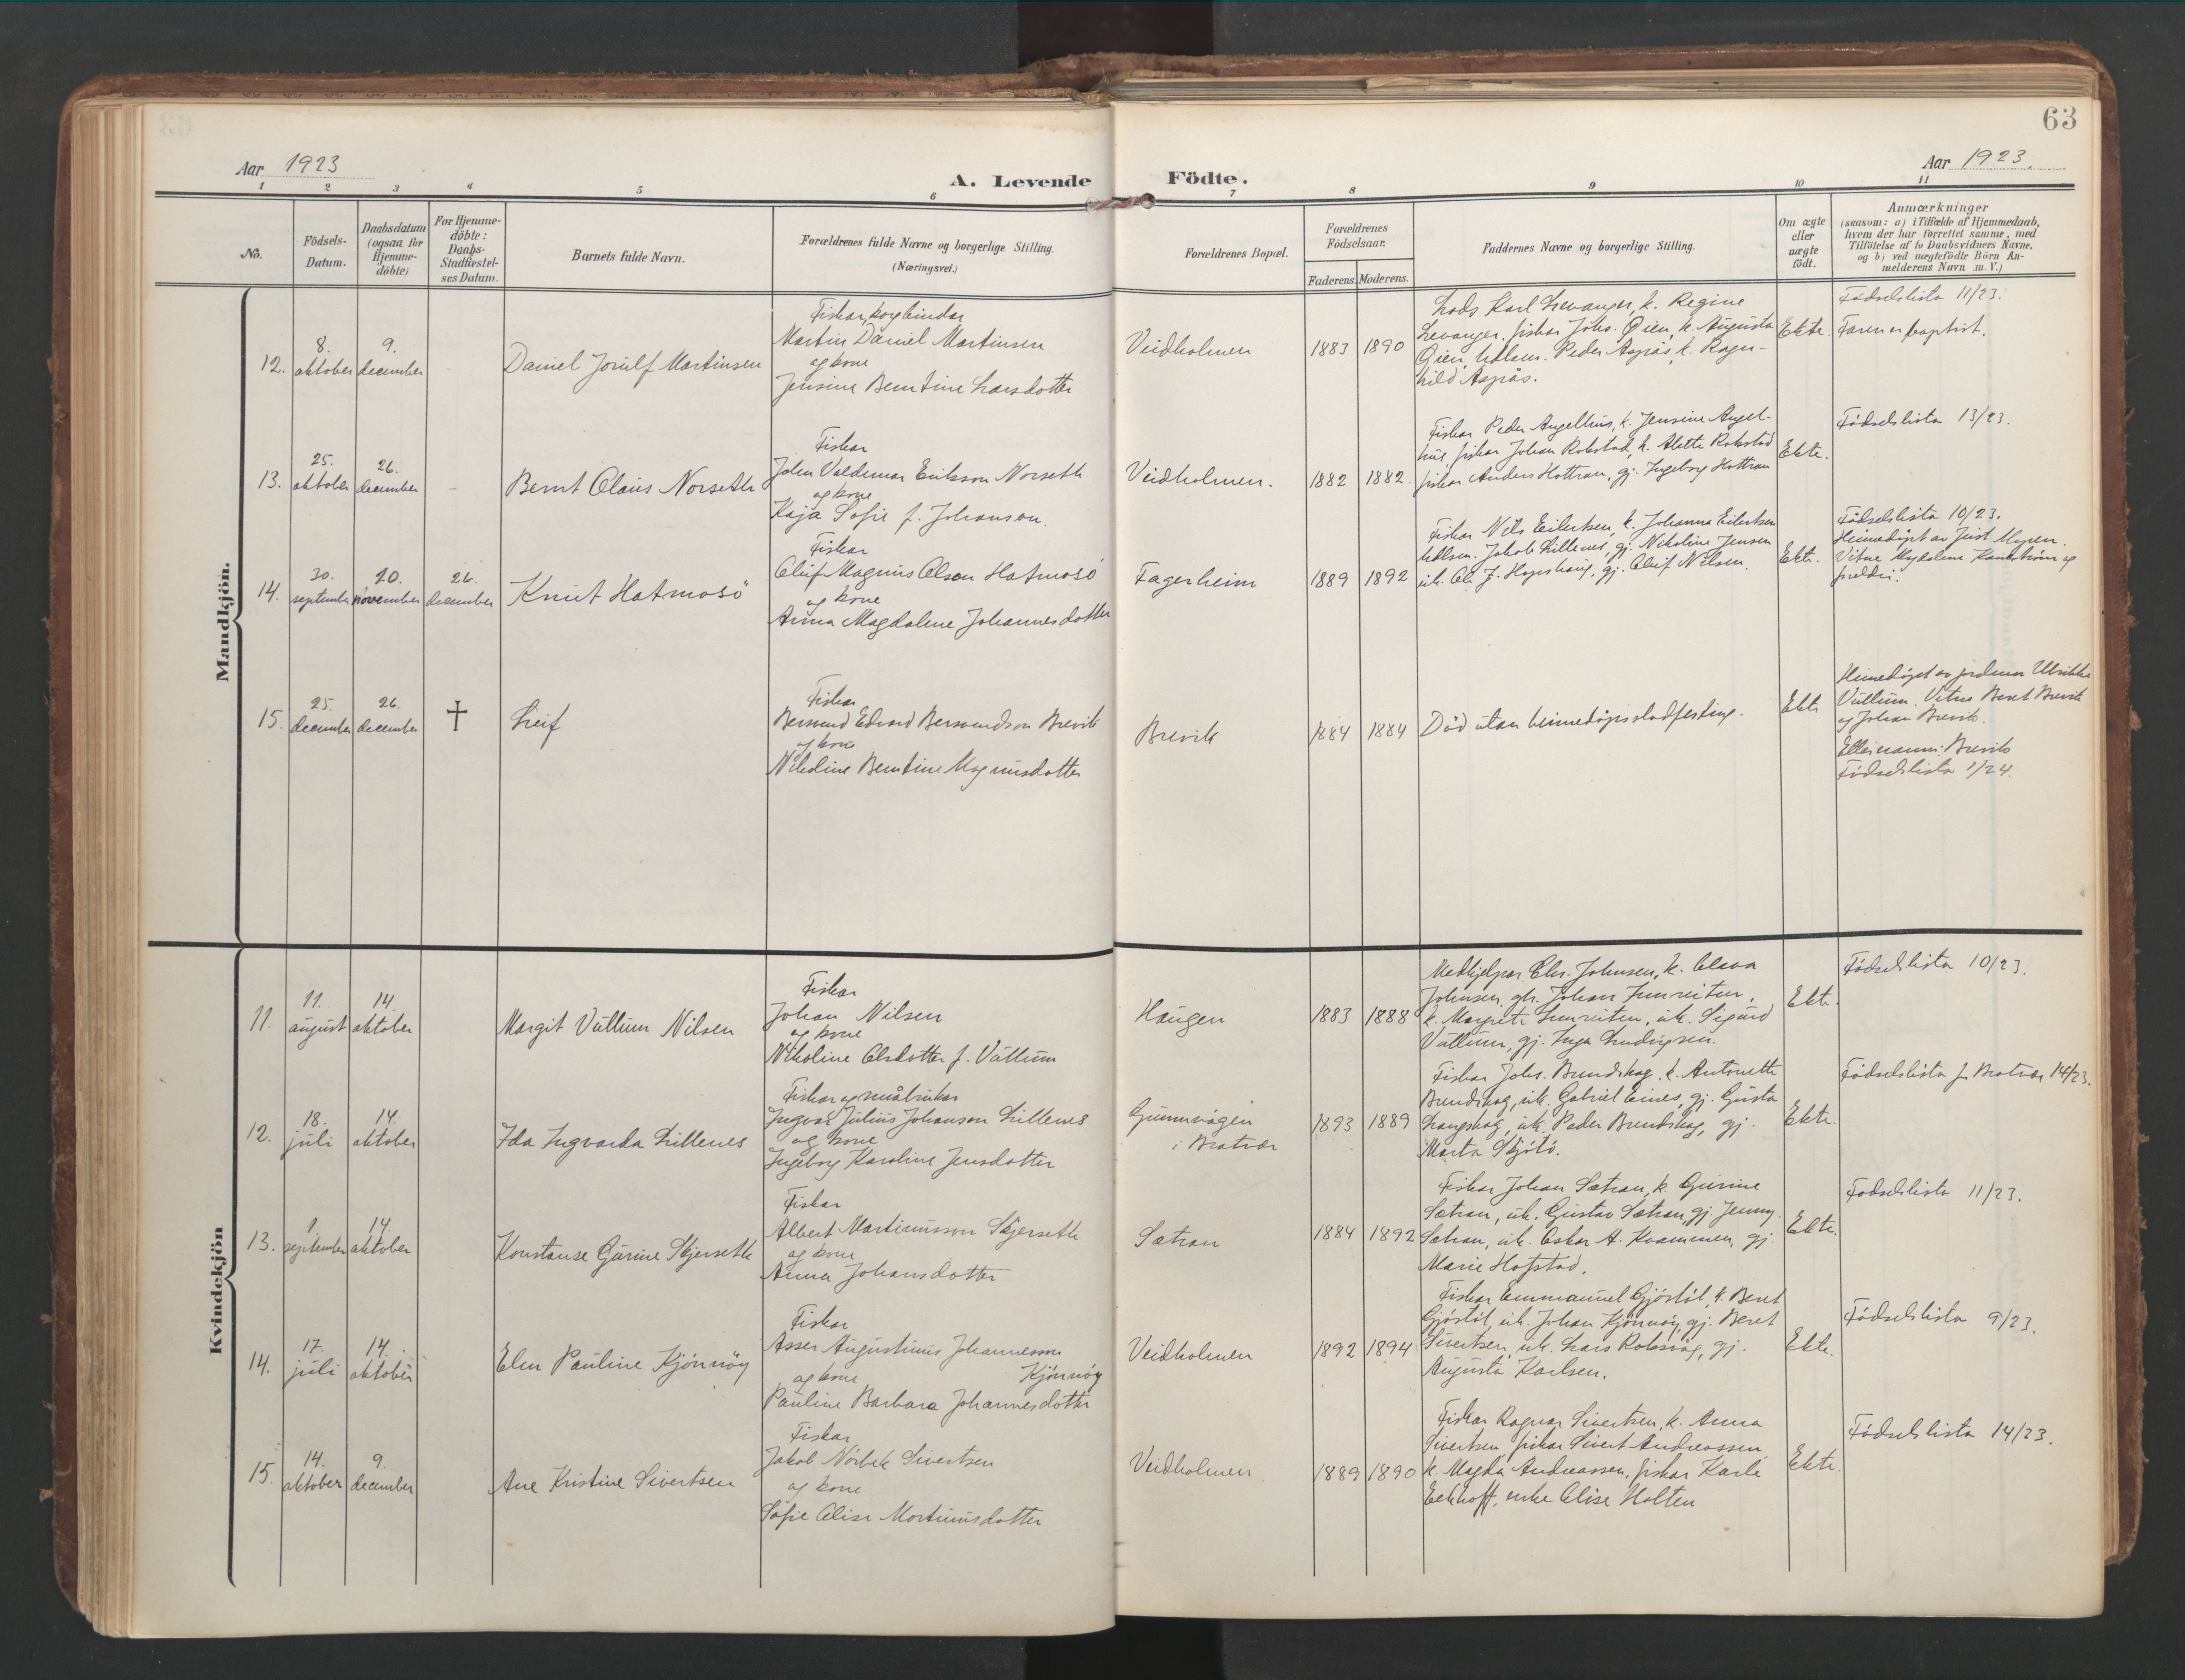 63
Aar 1923
A. Levende Födte.
Aar 1923.
1 2 3 4 5 6 7 8 9 10 11
No.
Födsels-
Datum.
Daabsdatum
(ogsaa for
Hjemme-
döbte)
For Hjemme-
döbte:
Daabs-
Stadfæstel-
ses Datum.
Barnets fulde Navn.
Forældrenes fulde Navne og borgerlige Stilling.
(Næringsvei.)
Forældrenes Bopæl.
Forældrenes
Födselsaar.
Faderens. Moderens.
Faddernes Navne og borgerlige Stilling.
Om ægte
eller
uægte
født.
Anmærkninger
(saasom: a) i Tilfælde af Hjemmedaab,
hvem der har forrettet samme, med
Tilföielse af to Daabsvidners Navne.
og b) ved uægtefödte Börn An-
melderens Navn m. V.)
Mandkjön.
12.
8.
oktober
9.
december
Daniel Jorulf Martinsen
Fiskar,
Martin Daniel Martinsen
og kone
Jensine Berntine Larsdotter
Veidholmen
1883 1890
Lods Karl Levanger, k. Regine
Levanger, fiskar Johs. Øien, k. Augusta
Øien, Peder Aspås, k. Ragn-
hild Aspås.
Ekte.
Fødselslista 11/23.
Faren er baptist.
13.
25.
oktober
26.
december
Bernt Olaus Norseth
Fiskar
John Valdemar Eriksson Norseth
og kone
Kaja Sofie f. Johanson.
Veidholmen.
1882 1882
Fiskar Peder Angellhus, k. Jensine Angel-
hus, fiskar Johan Rokstad, k. Alette Rokstad
fiskar Anders Hottran, gj. Ingeborg Hottran
Ekte.
Fødselslista 13/23.
14.
30.
september
20.
november
26.
december
Knut Hatmosö
Fiskar
Oluf Magnus Olson Hatmosö
og kone
Anna Magdalene Johannesdotter
Fagerheim
1889 1892
Fiskar Nils Eilertsen, k. Johanna Eilertsen
Jakob Lillenes, gj. Nikoline Jensen
uk. Ole J. Hopshaug, gj. Oluf Nilsen.
Ekte.
Fødselslista 10/23.
Heimedøypt av Just Myren.
Vitne Magdalene og
foreldri.
15.
25.
december
26.
december
†
Leif
Fiskar
Bersvend Edvard Bersvendson Brevik
og kone
Nikoline Berntine Magnusdotter
Brevik
1884 1884
Død utan heimedåpsstadfesting.
Ekte
Heimedøypt av jordmor Ulrikke
Vullum. Vitne Beret Brevik
og Johan Brevik.
Etternamn: Brevik
Fødselslista 1/24.
Kvindekjön
11.
11.
august
14
oktober
Margit Vullum Nilsen
Fiskar
Johan Nilsen
og kone
Nikoline Olsdotter f. Vullum
Haugen
1883 1888
Medhjelpar Chr. Johnsen, k. Olava
Johnsen, gbr. Johan
k. Margrete uk. Sigurd
Vullum, gj. Inga Ludvigsen.
Ekte.
Fødselslista 10/23.
12.
18.
juli
14.
oktober
Ida Ingvarda Lillenes
Fiskar og småbrukar
Ingvar Julius Johanson Lillenes
og kone
Ingeborg Karoline Jensdotter
Gunnvågen
i Bratvær
1893 1889
Fiskar Johs. Brendskag, k. Antonette
Brendskag, uk. Gabriel Eines, gj. Gusta
Langskag, uk. Peder Brendskag, gj.
Marta
Ekte.
Fødselslista f. Bratvær 14/23.
13.
1.
september
14.
oktober
Konstanse Gurine Skjerseth
Fiskar
Albert Martinusson Skjerseth
og kone
Anna Johansdotter
Sætran
1884 1892
Fiskar Johan Sætran, k. Gurine
Sætran, uk. Gustav Sætran, gj. Jenny
Sætran, uk. Oskar A. Kvammen, gj.
Marie Hofstad.
Ekte.
Fødselslista 11/23.
14.
17.
juli
14.
oktober
Elen Pauline Kjönnöy
Fiskar
Asser Augustinus Johannesson
og kone Kjönnöy
Pauline Barbara Johannesdotter
Veidholmen
1892 1894
Fiskar Emmanuel Gjöstöl, k. Beret
Gjöstöl, uk. Johan Kjönnöy, gj. Beret
Sivertsen, uk. Lars Roksvåg, gj.
Augusta Karlsen.
Ekte.
Fødselslista 9/23.
15.
14.
oktober
9.
december
Ane Kristine Sivertsen
Fiskar
Jakob Nörbek Sivertsen
og kone
Sofie Elise Martinusdotter
Veidholmen
1889 1890
Fiskar Ragnar Sivertsen, k. Anna
Sivertsen, fiskar Sivert Andreassen
k. Magda Andreassen, fiskar Karle
Eckhoff, enke Elise Holten
Ekte.
Fødselslista 14/23.